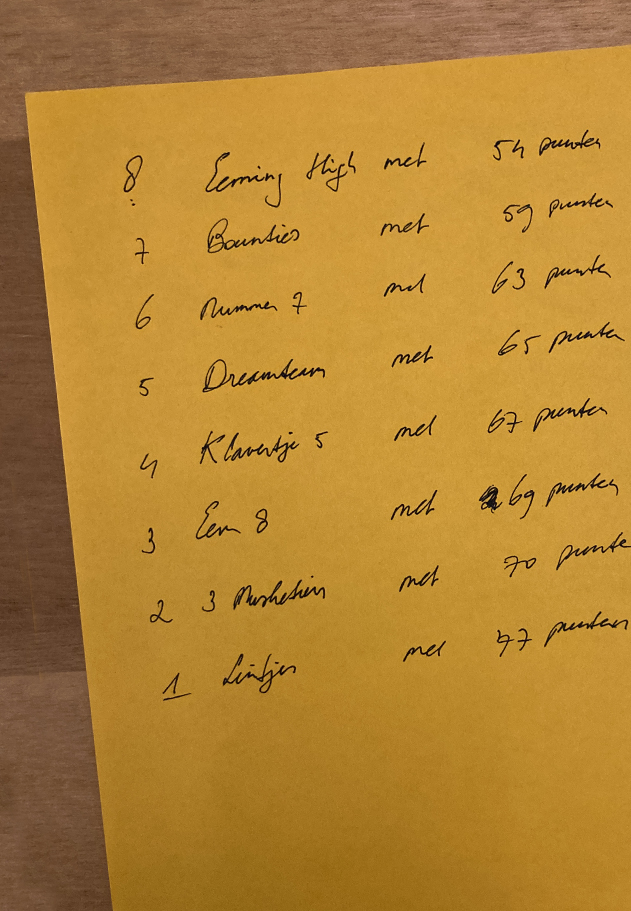 8 Eeming High met 54 punten
7 Bounties met 59 punten
6 Nummer 7 met 63 punten
5 Dreamteam met 65 punten
4 Klavertje 5 met 67 punten
3 Eem 8 met 69 punten
2 3 Musketiers met 70 punten
1 Lintjes met 77 punten